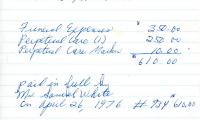 Funeral Expenses " 350.00
Perpetual Care (2) 250.00
Perpetual Care Marker 10.00
" 610.00
paid in full by
Mr Samuel White
on April 26 1976 # 934 610.00